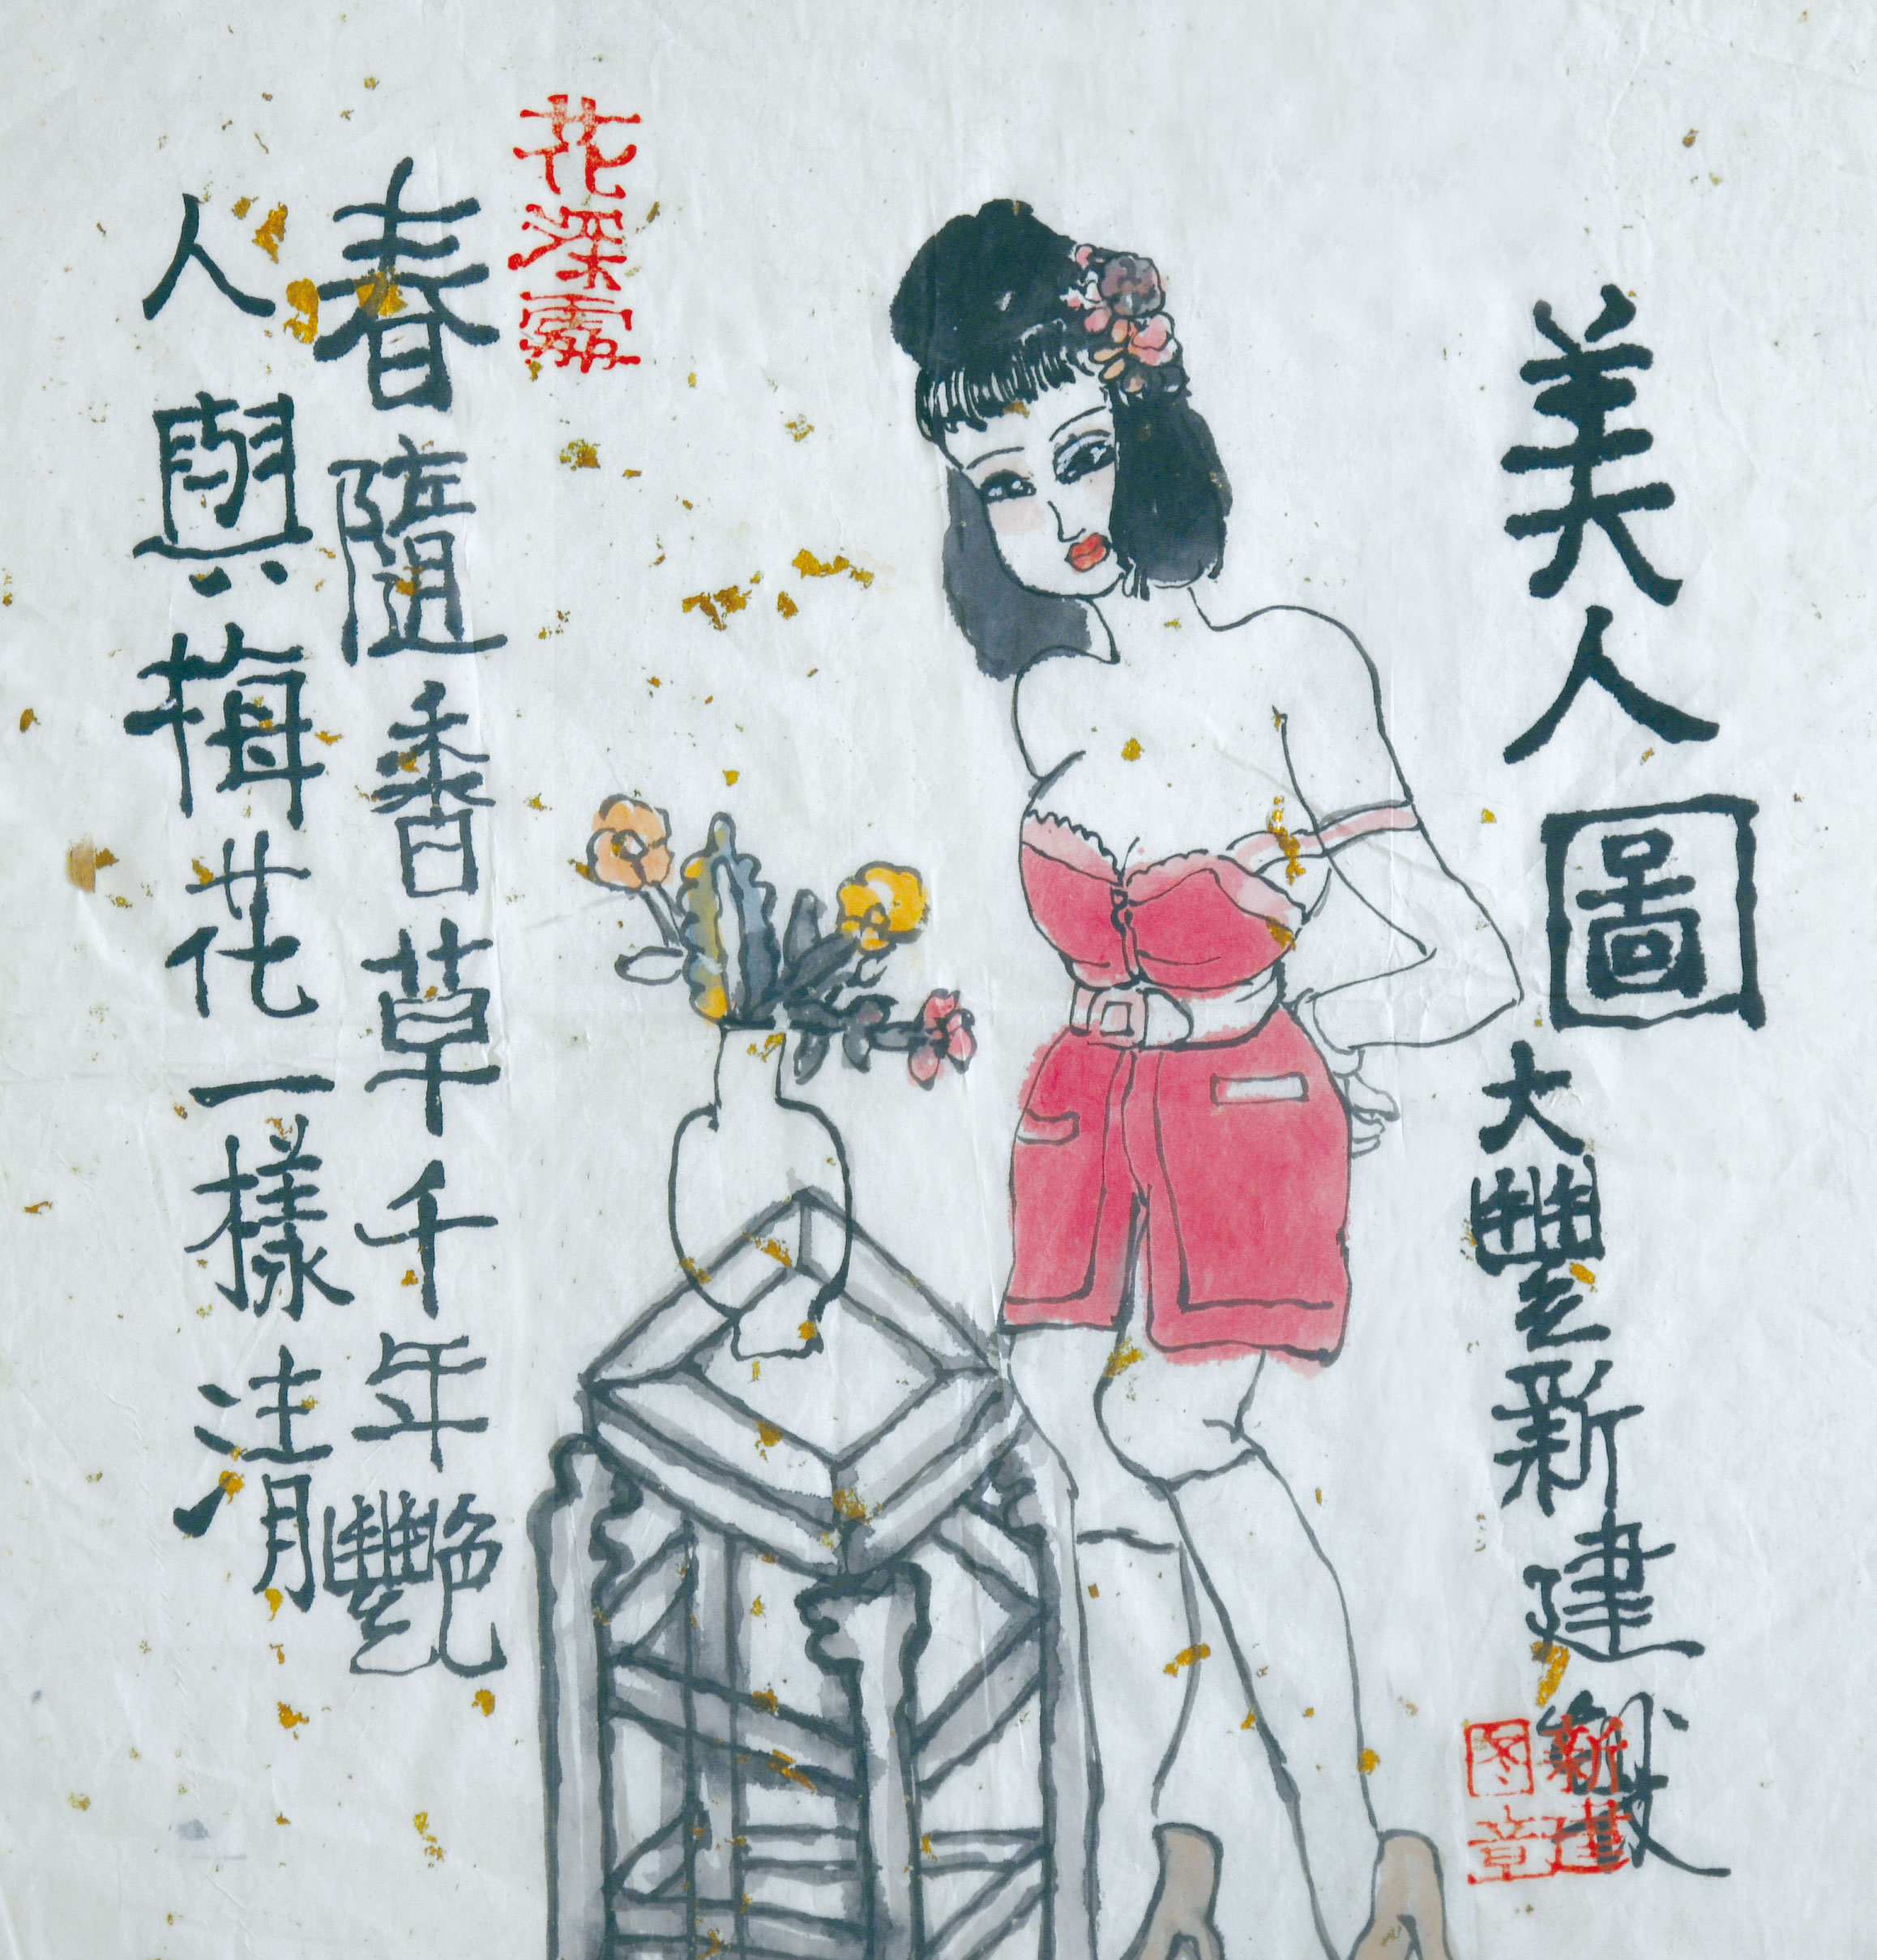 美人圖
大豐新建
新建图章
花深
春隨香草千年艷
人與梅花一樣清